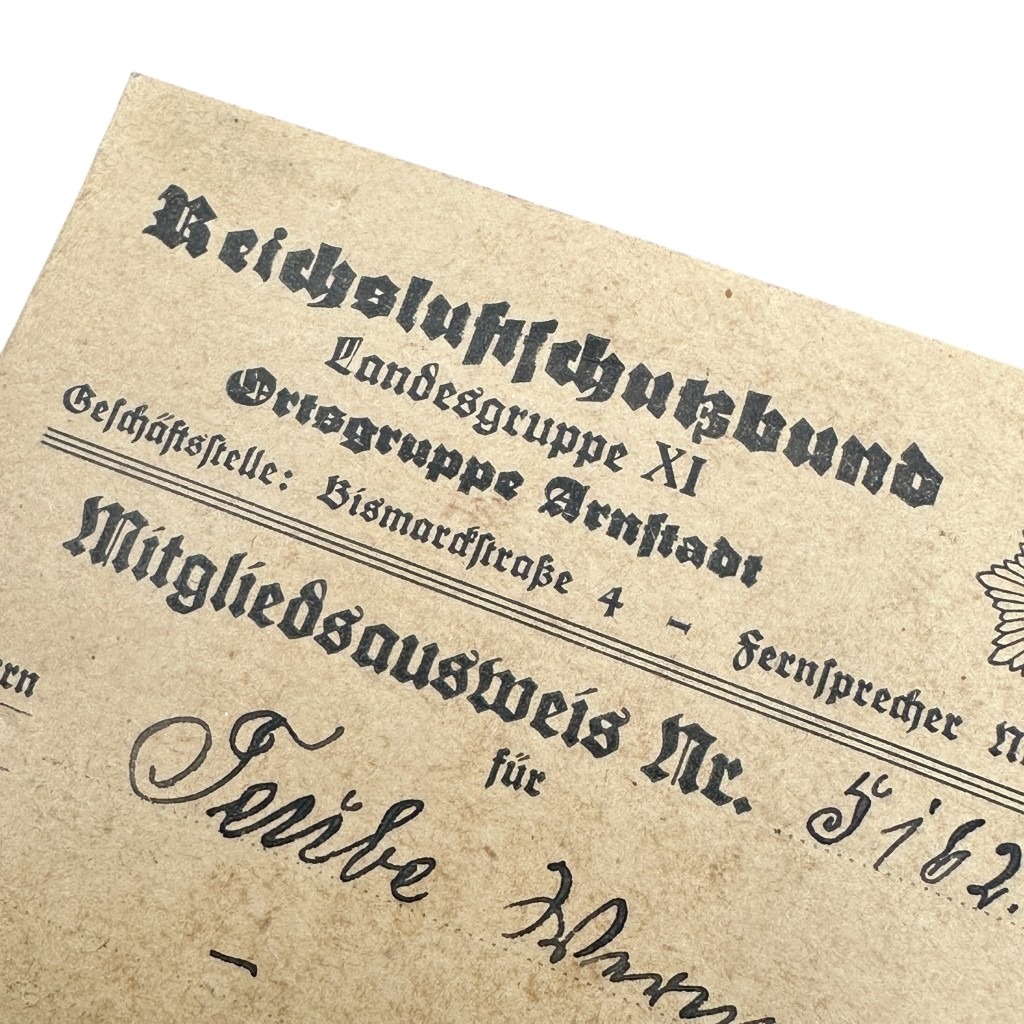 Reichsluftschutzbund
Landesgruppe XI
Ortsgruppe Arnstadt
Geschäftsstelle: Bismarckstraße 4 - Fernsprecher
Mitgliedsausweis Nr. 5162.
für